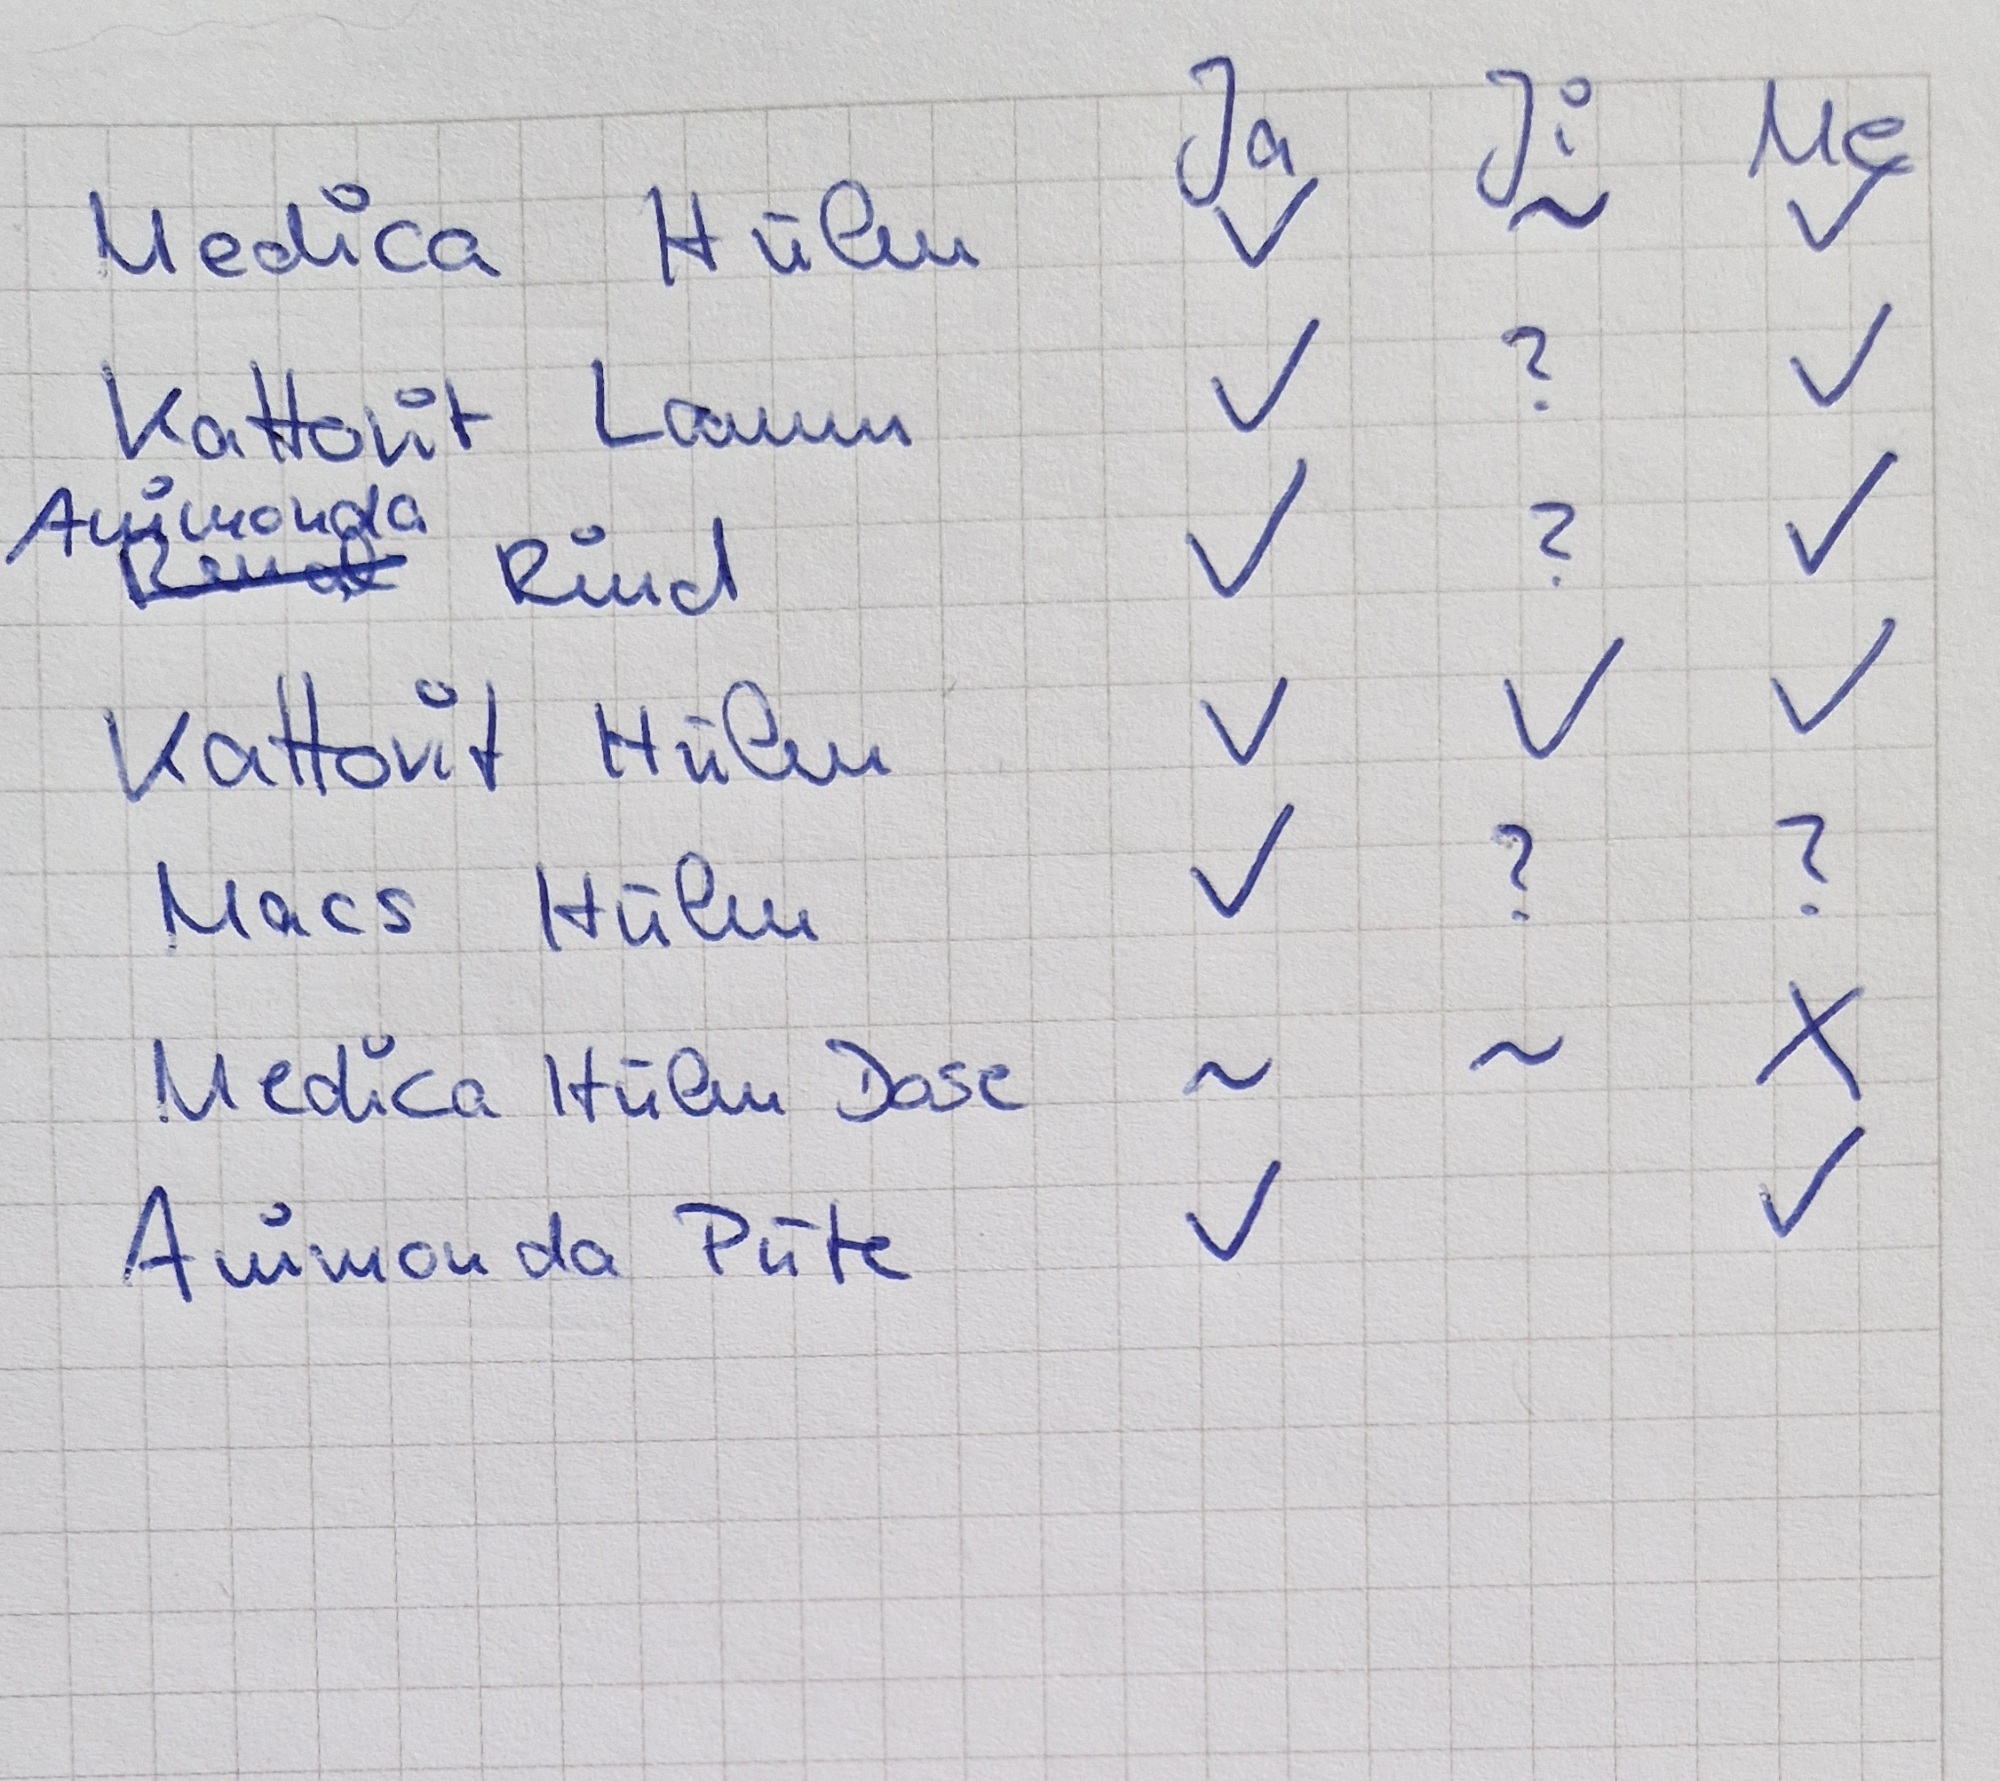 Ja Ji Me
Medica Hühn ✓ ~ ✓
Kattovit Lamm ✓ ? ✓
Animonda
Renal Rind ✓ ? ✓
Kattovit Hühn ✓ ✓ ✓
Macs Hühn ✓ ? ?
Medica Hühn Dose ~ ~ X
Animonda Püte ✓ ✓